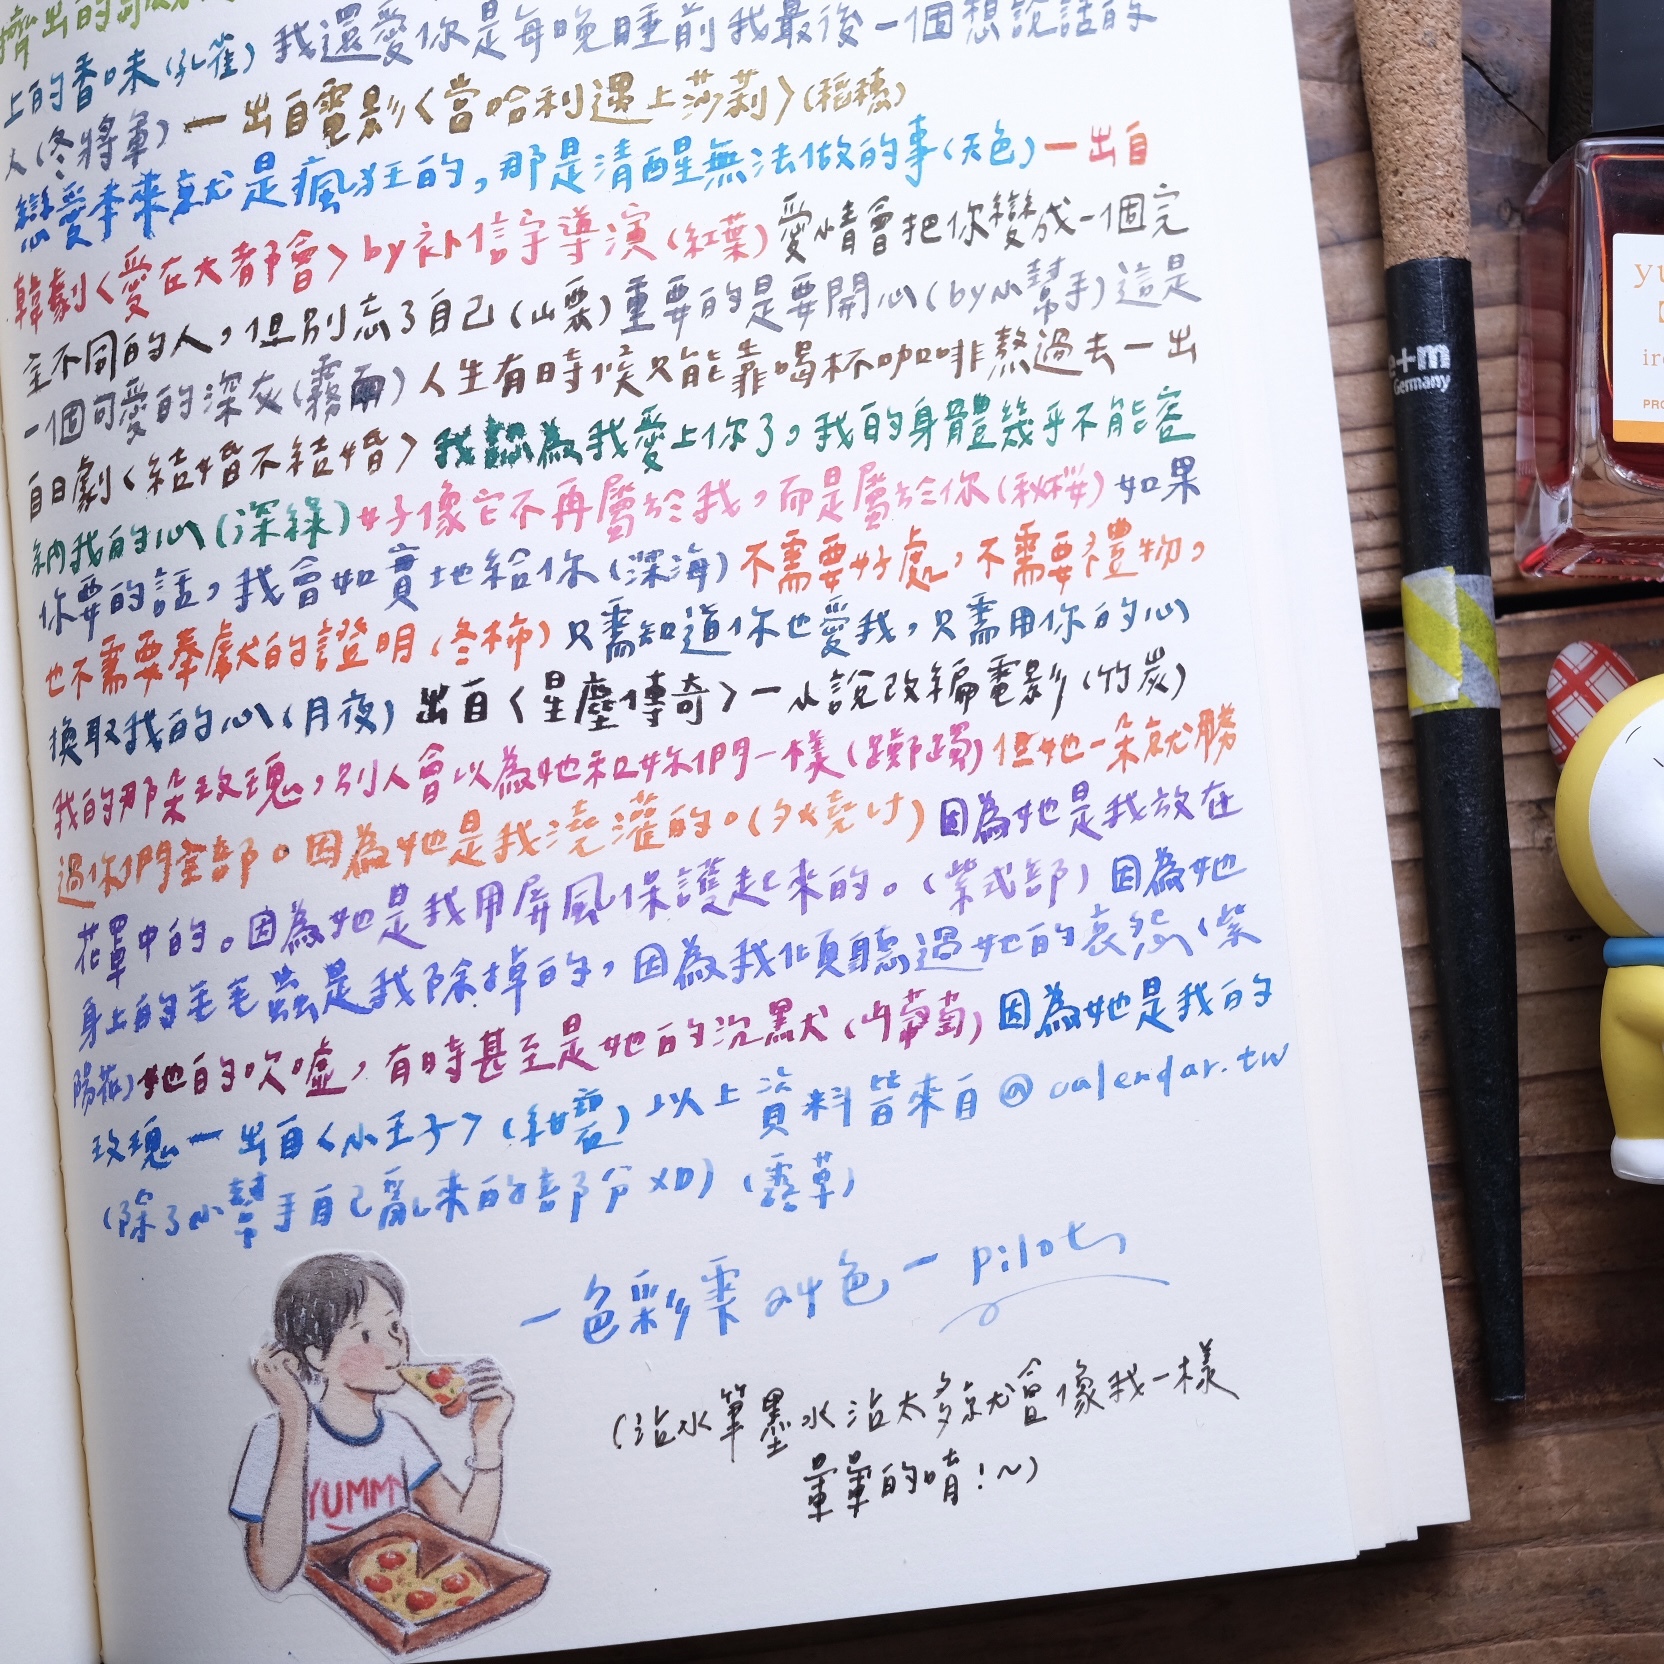 擠出的
上的香味(孔雀)我還愛你是每晚睡前我最後一個想說話的
人(冬將軍)一出自電影〈當哈利遇上莎莉〉(稻穗)
戀愛本來就是瘋狂的,那是清醒無法做的事(天色)一出自
韓劇〈愛在大都會〉by 補信宇導演(紅葉)愛情會把你變成一個完
全不同的人,但別忘了自己(山栗)重要的是要開心(by小幫手)這是
一個可愛的深灰(霧雨)人生有時候只能靠喝杯咖啡熬過去一出
自日劇〈結婚不結婚〉我認為我愛上你了,我的身體幾乎不能容
納我的心(深綠)好像它不再屬於我,而是屬於你(秋桜)如果
你要的話,我會如實地給你(深海)不需要好處,不需要禮物,
也不需要奉獻的證明(冬柿)只需知道你也愛我,只需用你的心
換取我的心(月夜)出自〈星塵傳奇〉一小說改編電影(竹炭)
我的那朵玫瑰,別人會以為她和妳們一樣(躑躅)但她一朵就勝
過你們全部。因為她是我澆灌的。(夕焼け)因為她是我放在
花罩中的。因為她是我用屏風保護起來的。(紫式部)因為她
身上的毛毛蟲是我除掉的,因為我傾聽過她的哀怨(紫
陽花)她的吹噓,有時甚至是她的沉默(山葡萄)因為她是我的
玫瑰一出自〈小王子〉(紺碧)以上資料皆來自@calendar.tw
(除了小幫手自己亂來的部分XD)(露草)
一色彩雫24色一pilot
(沾水筆墨水沾太多就會像我一樣
暈暈的唷!~)
YUMMY
e+m
Germany
yu
iro
PRO